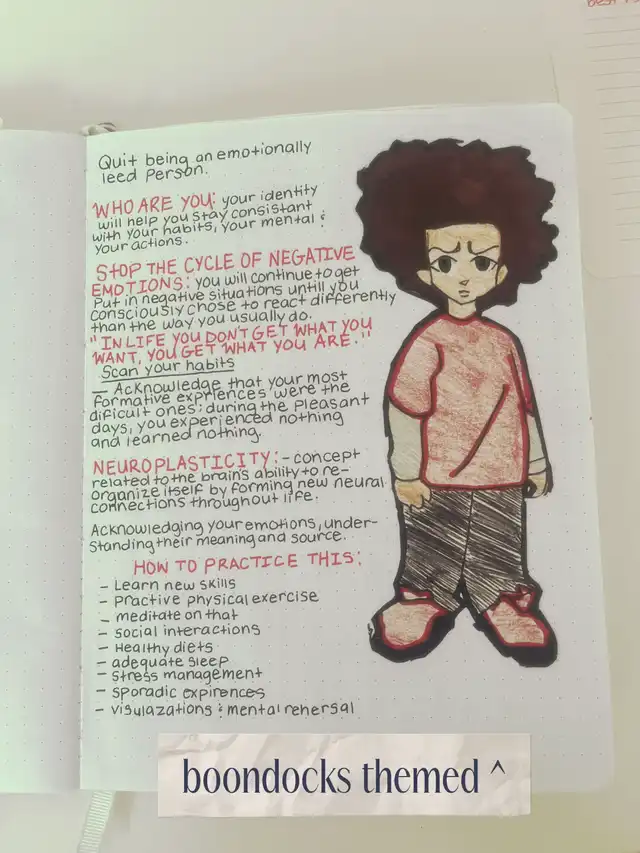 Quit being an emotionally
leed person.
WHO ARE YOU: your identity
will help you stay consistant
with your habits, your mental &
your actions.
STOP THE CYCLE OF NEGATIVE
EMOTIONS: you will continue to get
put in negative situations untill you
consciously chose to react differently
than the way you usually do.
"IN LIFE YOU DON'T GET WHAT YOU
WANT, YOU GET WHAT YOU ARE."
Scan your habits
- Acknowledge that your most
formative expriences were the
dificult ones; during the pleasant
days, you experienced nothing
and learned nothing.
NEUROPLASTICITY: - concept
related to the brain's ability to re-
organize itself by forming new neural
connections throughout life.
Acknowledging your emotions, under-
standing their meaning and source.
HOW TO PRACTICE THIS:
- Learn new skills
- practive physical exercise
- meditate on that
- social interactions
- Healthy diets
- adequate sleep
- stress management
- sporadic expirences
- visulazations & mental rehersal
boondocks themed ^